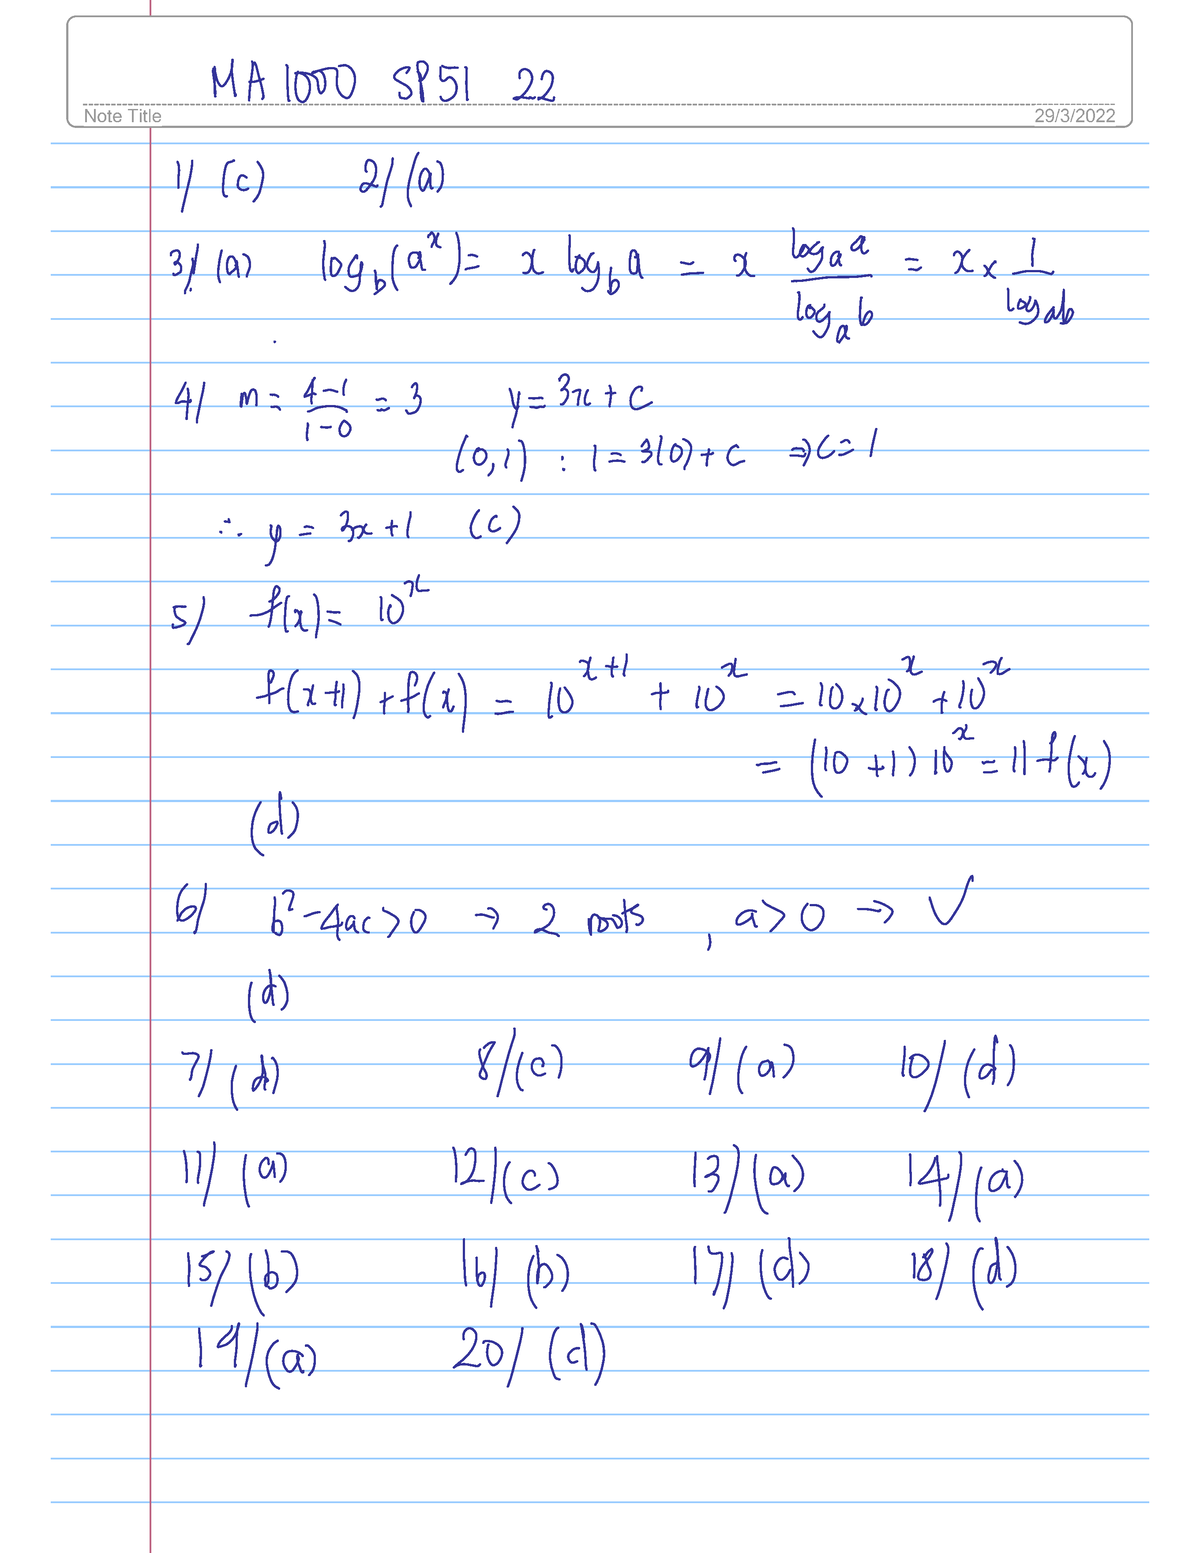 MA 1000 SP51 22
Note Title 29/3/2022
1/ (c) 2/ (a)
3/ (a) log_b(a^x) = x log_b a = x (log_a a)/(log_a b) = x × 1/(log_a b)
4/ m = (4-1)/(1-0) = 3 y = 3x + c
(0,1) : 1 = 3(0) + c ⇒ c = 1
∴ y = 3x + 1 (c)
5/ f(x) = 10^x
f(x+1) + f(x) = 10^(x+1) + 10^x = 10 × 10^x + 10^x
= (10 + 1) 10^x = 11 f(x)
(d)
6/ b² - 4ac > 0 → 2 roots , a > 0 → ∪
(d)
7/ (d) 8/ (c) 9/ (a) 10/ (d)
11/ (a) 12/ (c) 13/ (a) 14/ (a)
15/ (b) 16/ (b) 17/ (d) 18/ (d)
19/ (a) 20/ (d)